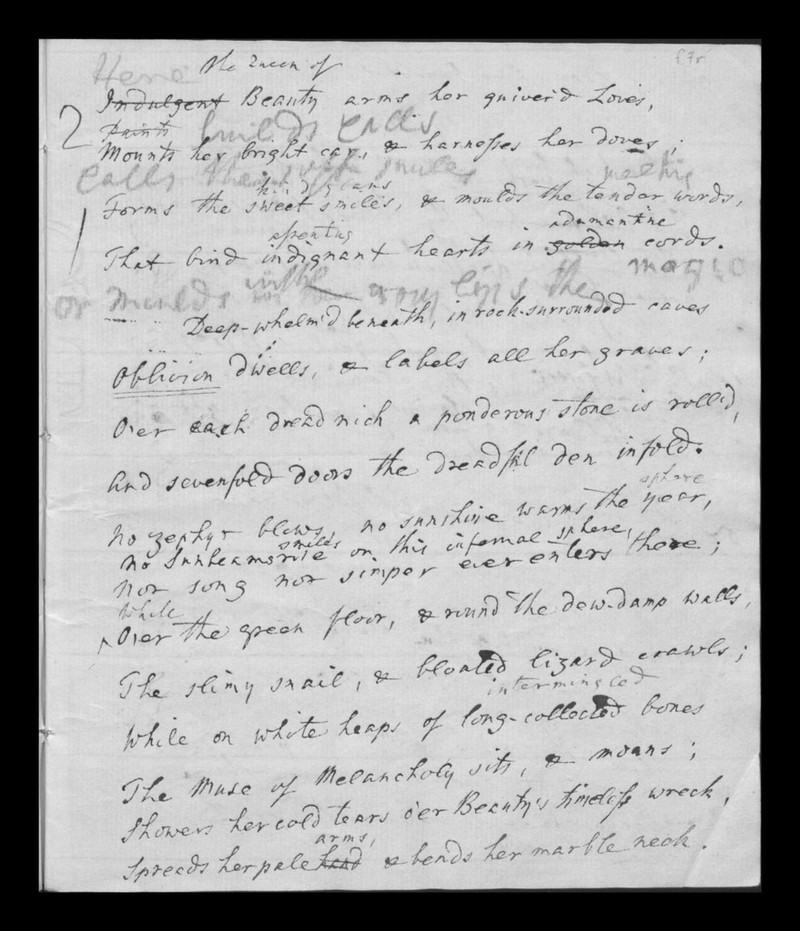 f7r
Here the Queen of
Indulgent Beauty arms her quiver'd Loves,
2
Paints builds calls
Mounts her bright car, & harnesses her doves;
calls the soft smiles melting
kind glans
Forms the sweet smiles, & moulds the tender words,
1
assenting adamantine
That bind indignant hearts in golden cords.
or moulds with rosy lips the magic
Deep-whelm'd beneath, in rock-surrounded caves
Oblivion dwells, & labels all her graves;
O'er each dread nich a ponderous stone is roll'd,
And sevenfold doors the dreadful den infold.
sphere
No zephyr blows, no sunshine warms the year,
smiles
no sunbeams rise on this infernal sphere,
Nor song nor simper ever enters there;
While
O'er the green floor, & round the dew-damp walls,
The slimy snail, & bloated lizard crawls;
intermingled
While on white heaps of long-collected bones
The Muse of Melancholy sits, & moans;
Showers her cold tears o'er Beauty's timeless wreck,
arms,
Spreads her pale hand & bends her marble neck.